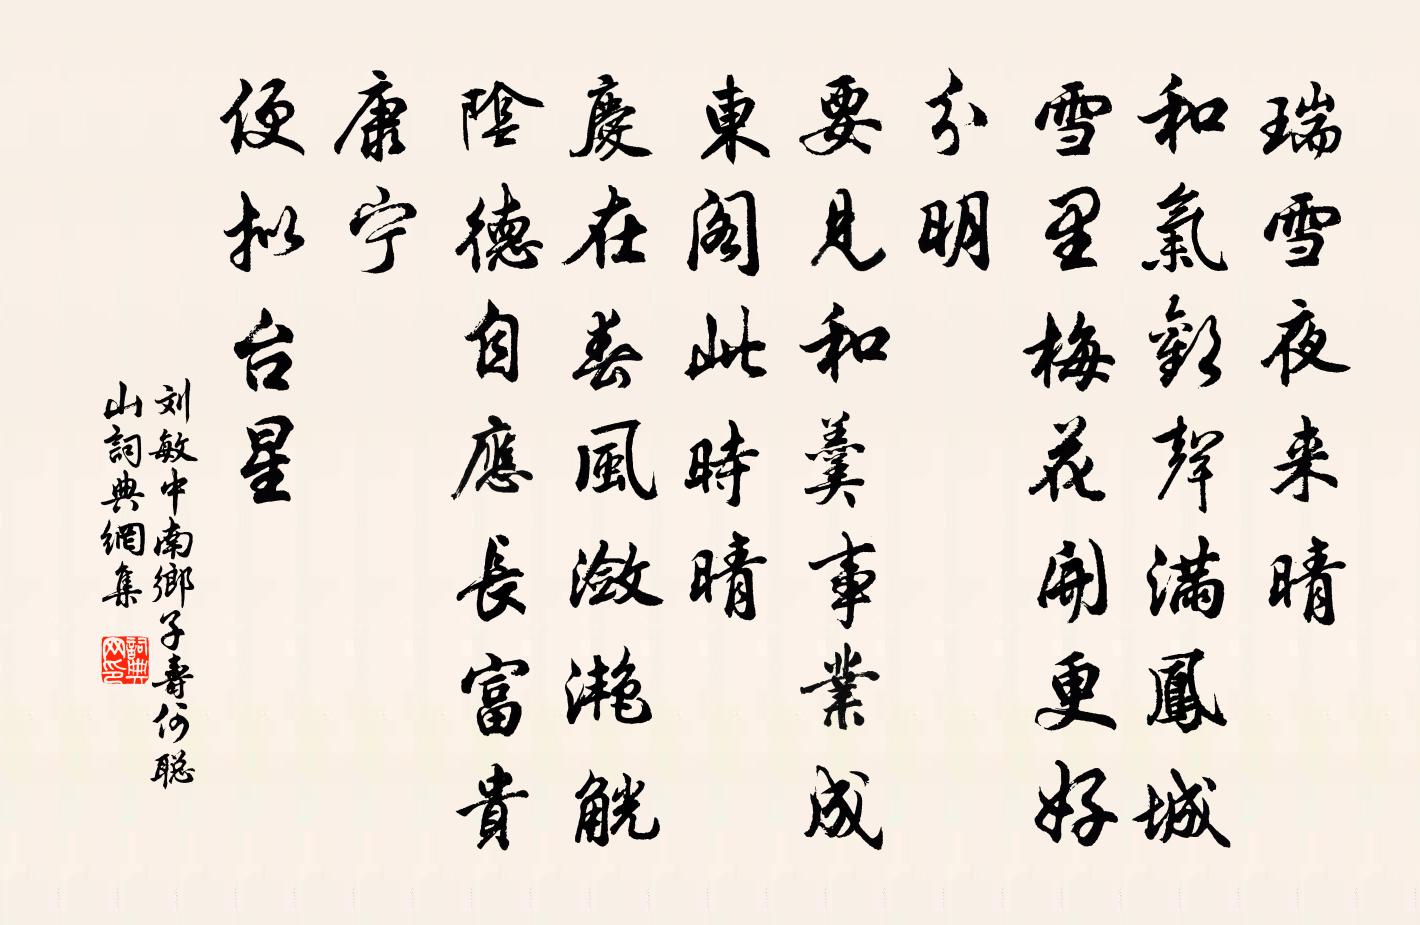 瑞雪夜来晴
和氣歡聲滿鳳城
雪里梅花開更好
分明
要見和羹事業成
東閣此時晴
慶在春風瀲灧觥
陰德自應長富貴
康宁
便拟台星
刘敏中南鄉子壽何聡
山詞典網集
詞典
网印